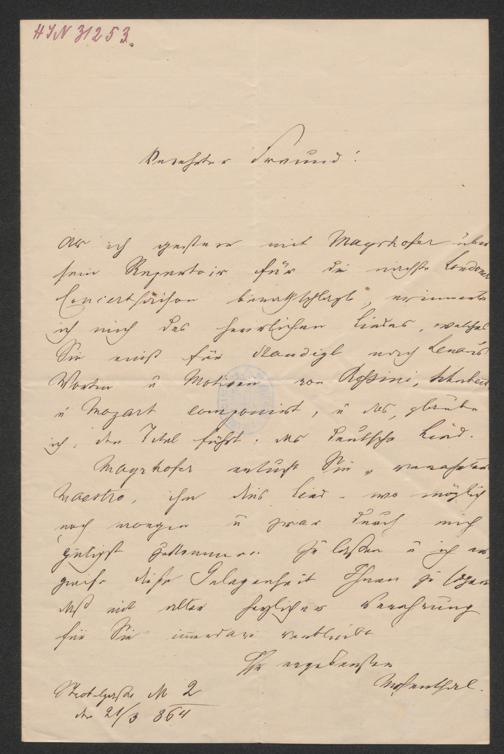 HIN 31253.
Verehrter Freund!
Als ich gestern mit Mayrhofer über
sein Repertoir für die nächste Londoner
Concertsaison berathschlagte, erinnerte
ich mich des herrlichen Liedes, welches
Sie einst für Staudigl nach Lenau's
Worten u Motiven von Rossini, Schubert
u Mozart componirt, u das, glaube
ich, den Titel führt: das deutsche Lied.
Mayrhofer ersucht Sie, verehrter
Maestro, ihm dies Lied - wo möglich
noch morgen u zwar durch mich
gütigst zukommen zu lassen u ich er-
greife diese Gelegenheit Ihnen zu sagen
daß mit alter herzlicher Verehrung
für Sie immerdar verbleibt
Ihr ergebenster
Mosenthal.
No 2
den 21/3 864